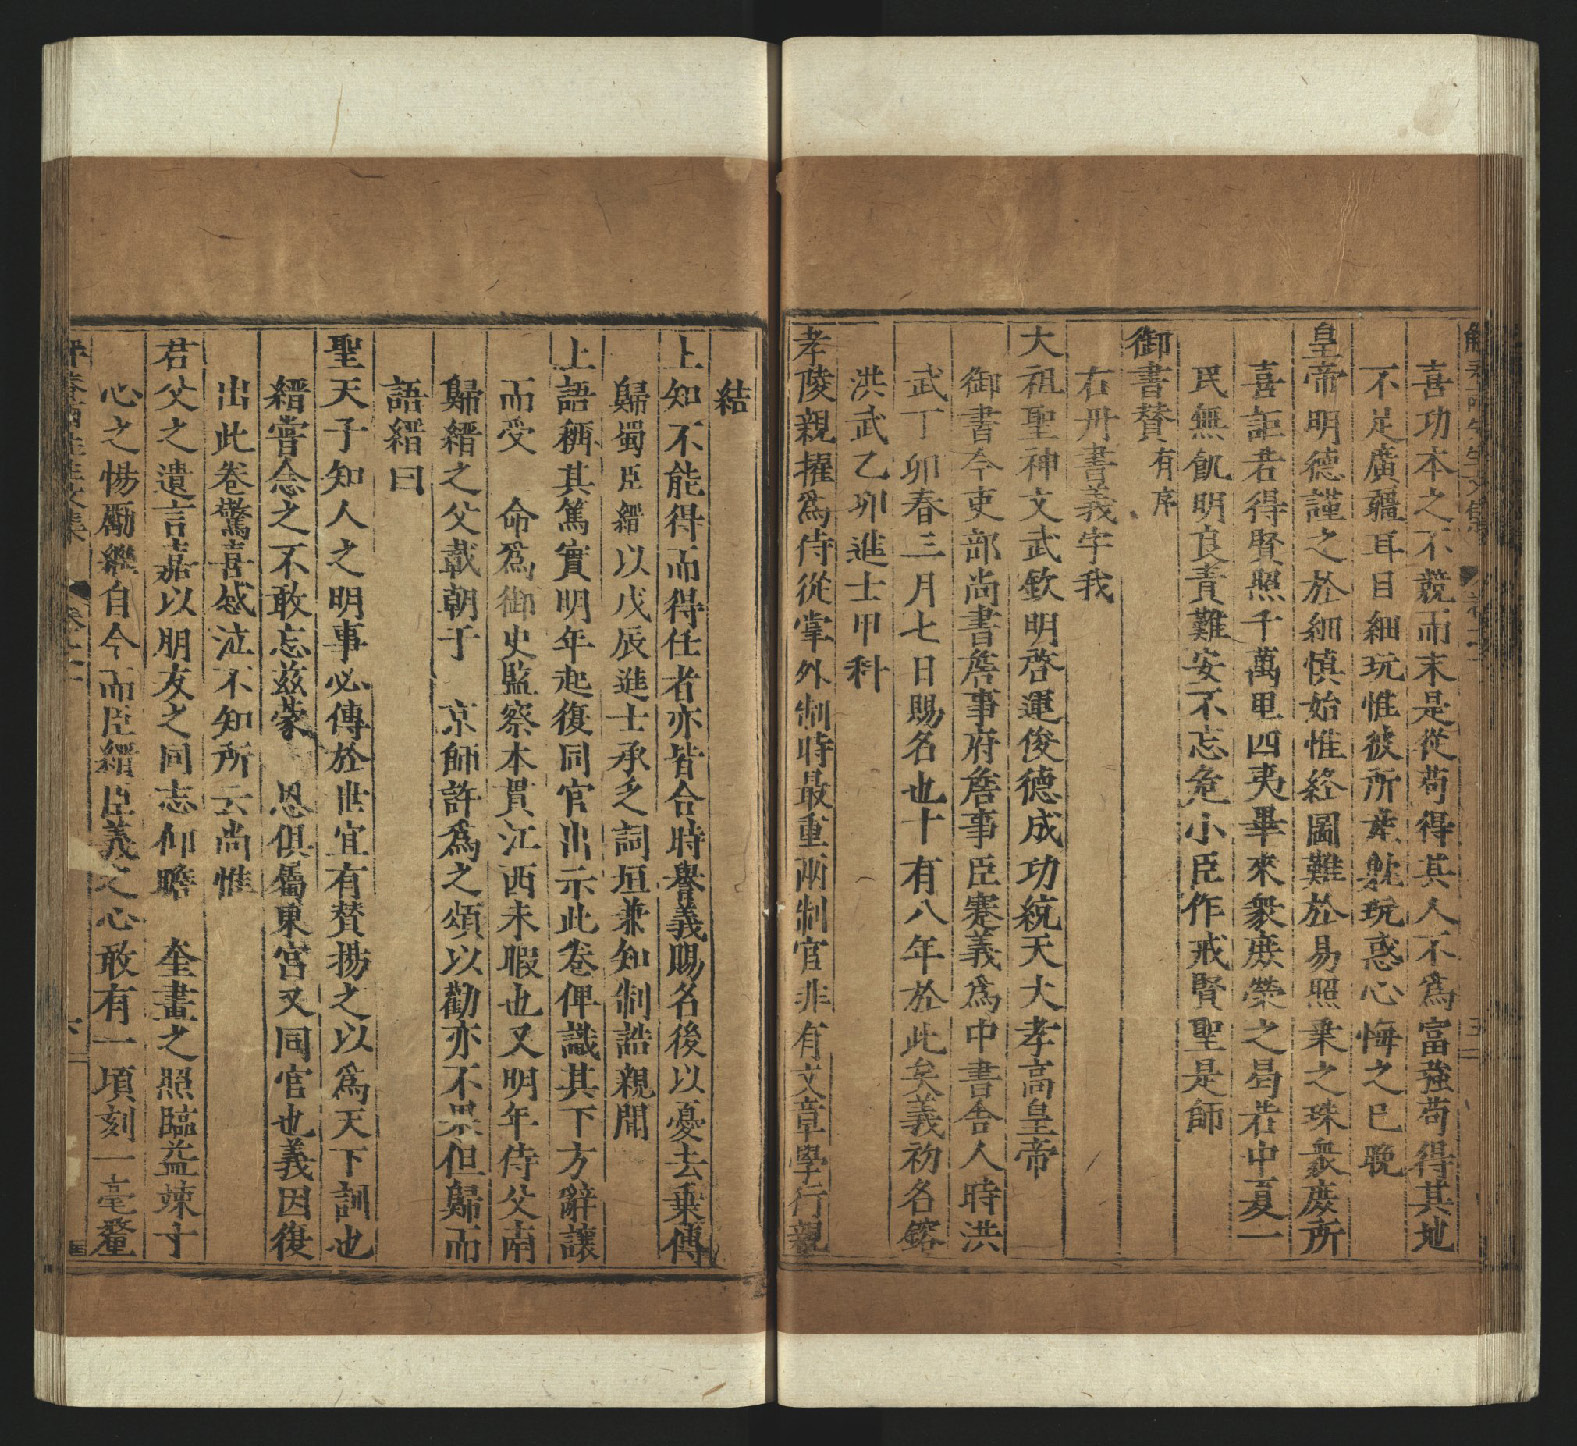 喜功本之不競而末是從苟得其人不為富強苟得其地
不足廣疆耳目細玩惟彼所 躭玩惑心悔之已晚
皇帝明德謹之於細慎始惟終圖難於易照乘之珠衆庶所
喜詎若得賢照千萬里四夷畢來衆庶榮之曷若中夏一
民無飢明良責難安不忘危小臣作戒賢聖是師
御書賛有序
右丹書義字我
大祖聖神文武欽明啓運俊德成功統天大孝高皇帝
御書今吏部尚書詹事府詹事臣蹇義為中書舍人時洪
武丁卯春三月七日賜名也十有八年於此矣義初名瑢
洪武乙丑進士甲科
孝陵親擢為侍從掌外制時最重兩制官非有文章學行親
結
上知不能得而得任者亦皆合時譽義賜名後以憂去乗傳
歸蜀臣縉以戊辰進士承乏詞垣兼知制誥親聞
上語稱其篤實明年起復同官出示此卷俾識其下方辭讓
而受　命為御史監察本貫江西未暇也又明年侍父南
歸縉之父載朝于　京師許為之頌以勸亦不果但歸而
語縉曰
聖天子知人之明事必傳於世宜有賛揚之以為天下訓也
縉嘗念之不敢忘兹蒙　恩俱屬東宮又同官也義因復
出此卷驚喜感泣不知所云尚惟
君父之遺言嘉以朋友之同志仰瞻　奎畫之照臨益竦寸
心之惕勵繼自今而臣縉臣義之心敢有一頃刻一毫釐